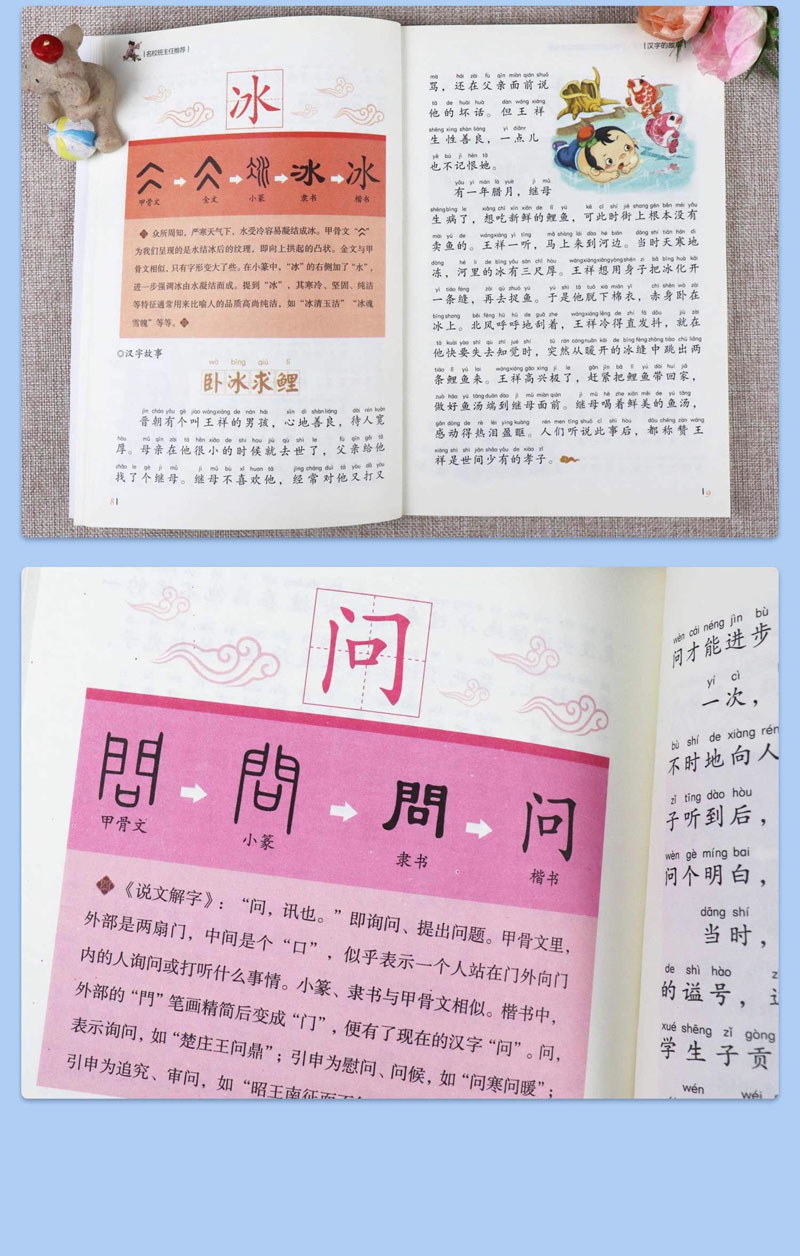 名校班主任推荐
冰
甲骨文 金文 小篆 隶书 楷书
众所周知，严寒天气下，水受冷容易凝结成冰。甲骨文“
为我们呈现的是水结冰后的纹理，即向上拱起的凸状。金文与甲
骨文相似，只有字形变大了些。在小篆中，“冰”的右侧加了“水”，
进一步强调冰由水凝结而成。提到“冰”，其寒冷、坚固、纯洁
等特征通常用来比喻人的品质高尚纯洁，如“冰清玉洁”“冰魂
雪魄”等等。
◎汉字故事
wò bīng qiú lǐ
卧冰求鲤
jìn cháo yǒu gè jiào wáng xiáng de nán hái xīn dì shàn liáng dài rén kuān
晋朝有个叫王祥的男孩，心地善良，待人宽
hòu mǔ qīn zài tā hěn xiǎo de shí hou jiù qù shì le fù qīn gěi tā
厚。母亲在他很小的时候就去世了，父亲给他
zhǎo le gè jì mǔ jì mǔ bù xǐ huan tā jīng cháng duì tā yòu dǎ yòu
找了个继母。继母不喜欢他，经常对他又打又
8
汉字的故事
mà hái zài fù qīn miàn qián shuō
骂，还在父亲面前说
tā de huài huà dàn wáng xiáng
他的坏话。但王祥
shēng xìng shàn liáng yì diǎnr
生性善良，一点儿
yě bú jì hèn tā
也不记恨她。
yǒu yì nián là yuè jì mǔ
有一年腊月，继母
shēng bìng le xiǎng chī xīn xiān de lǐ yú kě cǐ shí jiē shang gēn běn méi yǒu
生病了，想吃新鲜的鲤鱼，可此时街上根本没有
mài yú de wáng xiáng yì tīng mǎ shàng lái dào hé biān dāng shí tiān hán dì
卖鱼的。王祥一听，马上来到河边。当时天寒地
dòng hé li de bīng yǒu sān chǐ hòu wáng xiáng xiǎng yòng shēn zi bǎ bīng huà kāi
冻，河里的冰有三尺厚。王祥想用身子把冰化开
yì tiáo fèng zài qù zhuō yú yú shì tā tuō xià mián yī chì shēn wò zài
一条缝，再去捉鱼。于是他脱下棉衣，赤身卧在
bīng shang běi fēng hū hū de guā zhe wáng xiáng lěng de zhí fā dǒu jiù zài
冰上。北风呼呼地刮着，王祥冷得直发抖，就在
tā kuài yào shī qù zhī jué shí tū rán cóng nuǎn kāi de bīng fèng zhōng tiào chū liǎng
他快要失去知觉时，突然从暖开的冰缝中跳出两
tiáo lǐ yú lái wáng xiáng gāo xìng jí le gǎn jǐn bǎ lǐ yú dài huí jiā
条鲤鱼来。王祥高兴极了，赶紧把鲤鱼带回家，
zuò hǎo yú tāng duān dào jì mǔ miàn qián jì mǔ hē zhe xiān měi de yú tāng
做好鱼汤端到继母面前。继母喝着鲜美的鱼汤，
gǎn dòng de rè lèi yíng kuàng rén men tīng shuō cǐ shì hòu dōu chēng zàn wáng
感动得热泪盈眶。人们听说此事后，都称赞王
xiáng shì shì jiān shǎo yǒu de xiào zǐ
祥是世间少有的孝子。
9
问
甲骨文 小篆 隶书 楷书
《说文解字》：“问，讯也。”即询问、提出问题。甲骨文里，
外部是两扇门，中间是个“口”，似乎表示一个人站在门外向门
内的人询问或打听什么事情。小篆、隶书与甲骨文相似。楷书中，
外部的“門”笔画精简后变成“门”，便有了现在的汉字“问”。问，
表示询问，如“楚庄王问鼎”；引申为慰问、问候，如“问寒问暖”；
引申为追究、审问，如“昭王南征而不
wèn cái néng jìn bù
问才能进步
yí cì
一次，
bù shí de xiàng rén
不时地向人
zǐ tīng dào hòu
子听到后，
wèn gè míng bai
问个明白，
dāng shí
当时，
de shì hào
的谥号，
xué shēng zǐ gòng
学生子贡
wén wéi